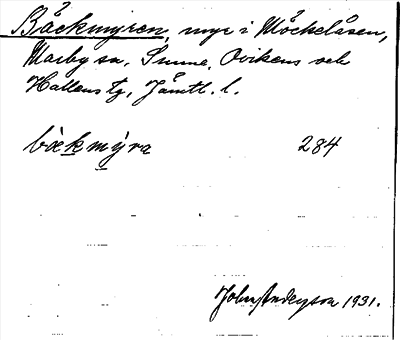 Bäckmyren, myr i Möckelåsen,
Marby sn, Sunne, Ovikens och
Hallens tg, Jämtl. l.
bække mýra 284
John Anderson 1931.